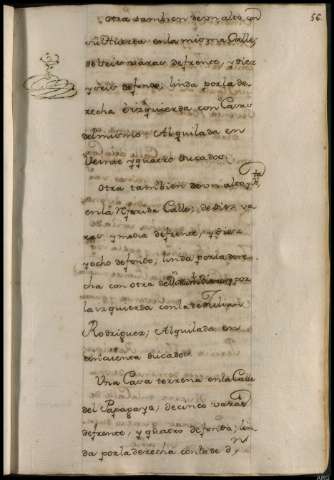 56
Otra tambien de un alto, con
su Huerta en la misma Calle,
de seis varas de frente, y diez
y seis de fondo; linda por la de-
recha e izquierda con Casas
del mismo; Alquilada en
Veinte y quatro ducados.
Otra tambien de un alto,
en la referida Calle; de diez va-
ras y media de frente, y diez
y ocho de fondo, linda por la dere-
cha con otra de y por
la izquierda con la de
Rodriguez; Alquilada en
cincuenta ducados.
Una Casa terrena en la Calle
del Papagayo, de cinco varas
de frente, y quatro de fondo; lin-
da por la derecha con la de d.n